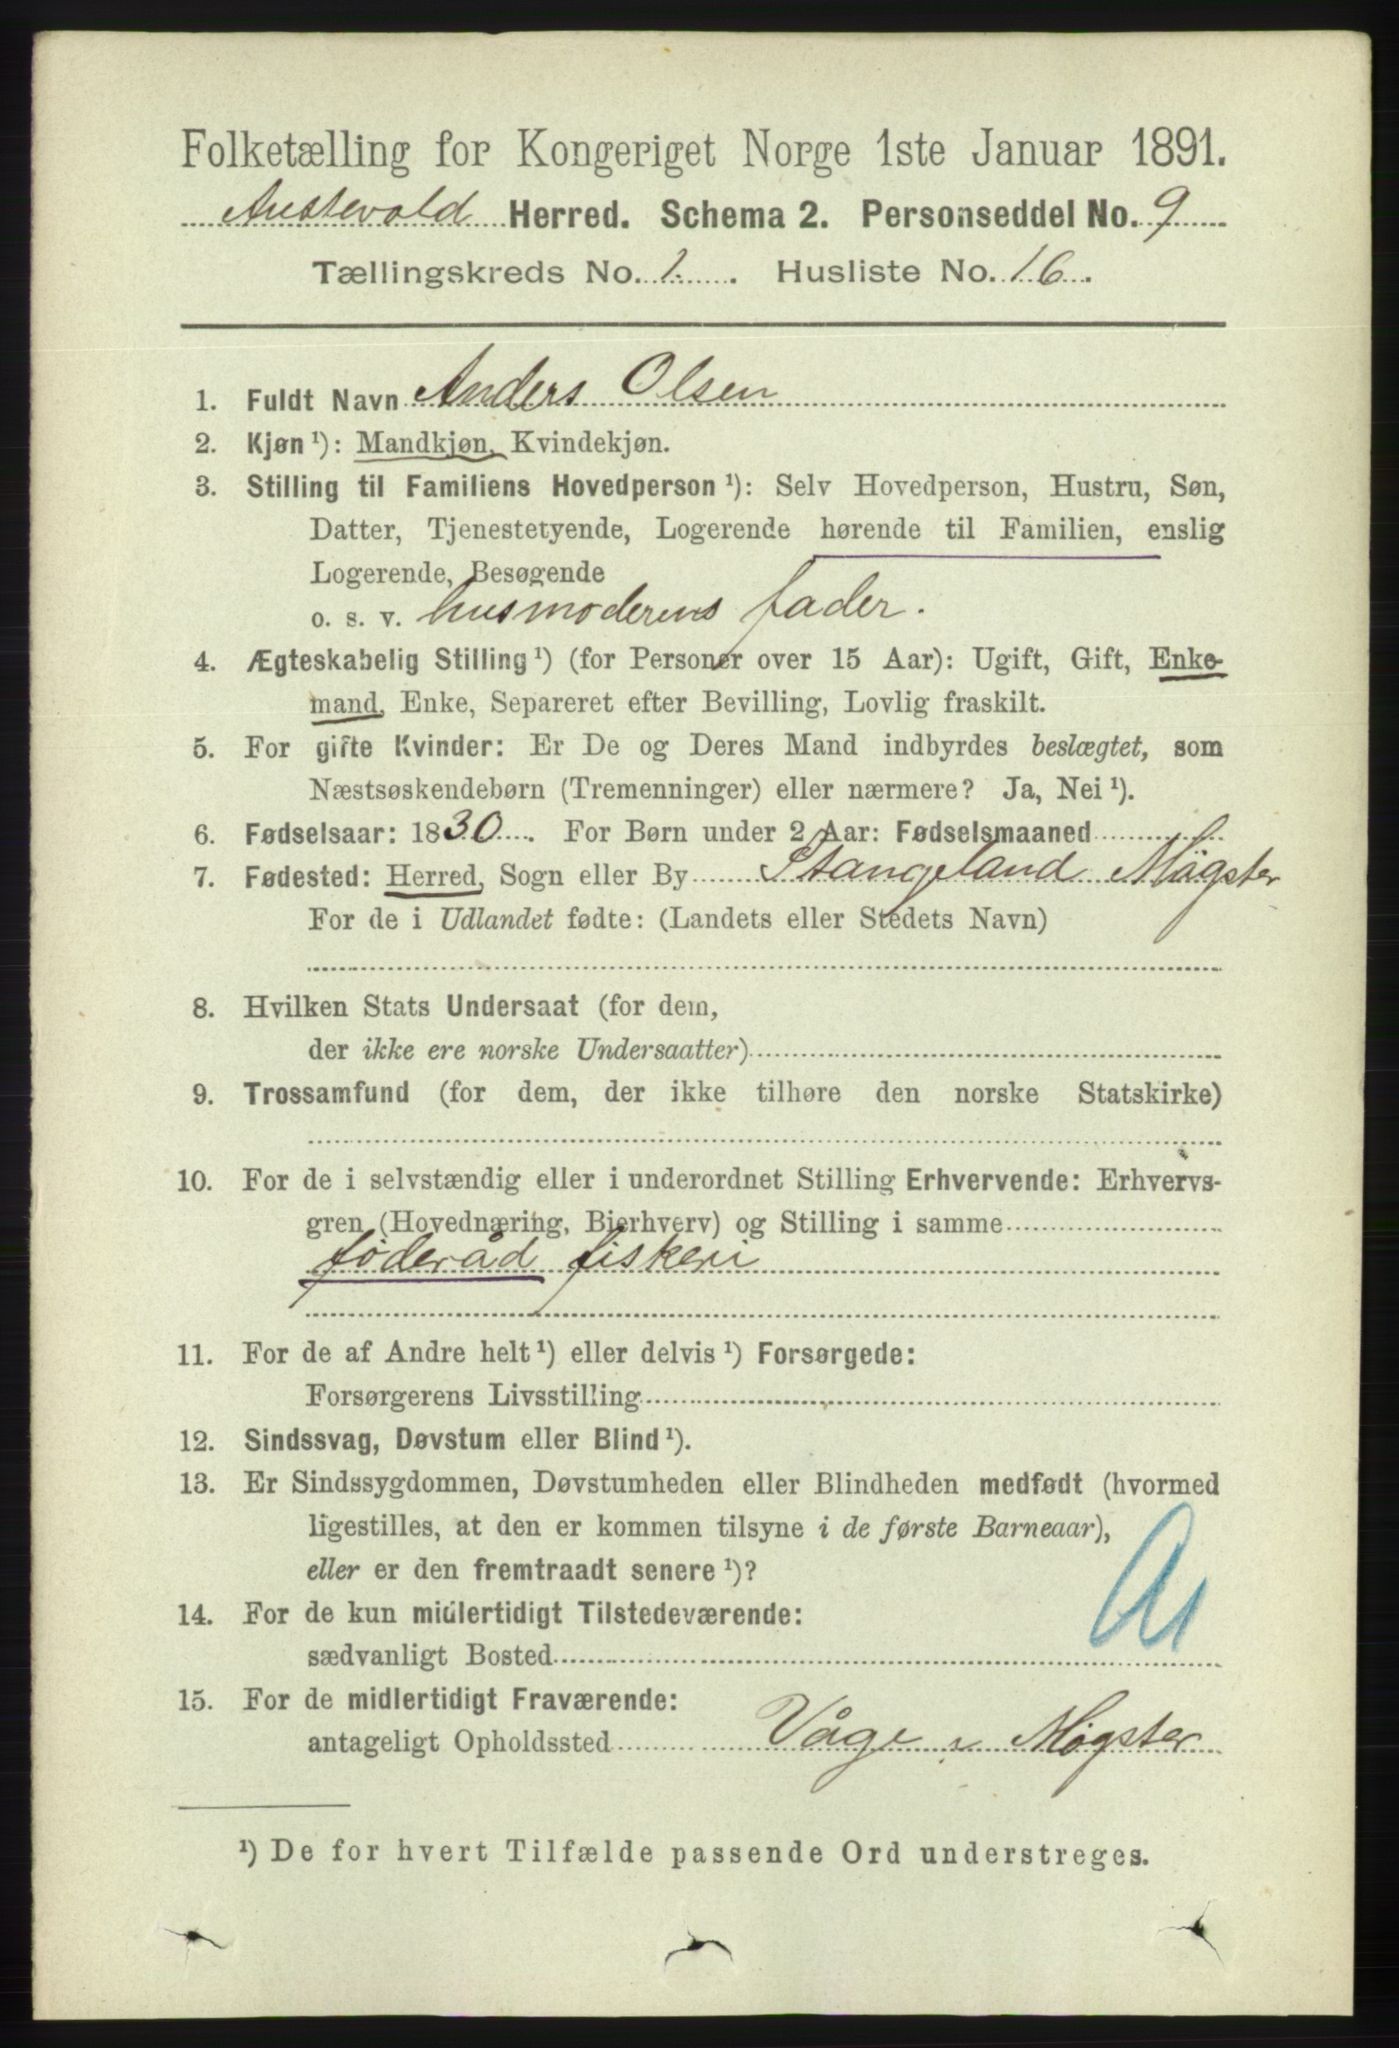 Folketælling for Kongeriget Norge 1ste Januar 1891.
Austevold Herred. Schema 2. Personseddel No. 9
Tællingskreds No. 1. Husliste No. 16.
1. Fuldt Navn Anders Olsen
2. Kjøn ¹): Mandkjøn, Kvindekjøn.
3. Stilling til Familiens Hovedperson ¹): Selv Hovedperson, Hustru, Søn,
Datter, Tjenestetyende, Logerende hørende til Familien, enslig
Logerende, Besøgende
o. s. v. husmoderens fader.
4. Ægteskabelig Stilling ¹) (for Personer over 15 Aar): Ugift, Gift, Enke-
mand, Enke, Separeret efter Bevilling, Lovlig fraskilt.
5. For gifte Kvinder: Er De og Deres Mand indbyrdes beslægtet, som
Næstsøskendebørn (Tremenninger) eller nærmere? Ja, Nei ¹).
6. Fødselsaar: 1830. For Børn under 2 Aar: Fødselsmaaned
7. Fødested: Herred, Sogn eller By Stangeland Møgster
For de i Udlandet fødte: (Landets eller Stedets Navn)
8. Hvilken Stats Undersaat (for dem,
der ikke ere norske Undersaatter)
9. Trossamfund (for dem, der ikke tilhøre den norske Statskirke)
10. For de i selvstændig eller i underordnet Stilling Erhvervende: Erhvervs-
gren (Hovednæring, Bierhverv) og Stilling i samme
føderåd fiskeri
11. For de af Andre helt ¹) eller delvis ¹) Forsørgede:
Forsørgerens Livsstilling
12. Sindssvag, Døvstum eller Blind ¹).
13. Er Sindssygdommen, Døvstumheden eller Blindheden medfødt (hvormed
ligestilles, at den er kommen tilsyne i de første Barneaar),
eller er den fremtraadt senere ¹)?
14. For de kun midlertidigt Tilstedeværende:
sædvanligt Bosted
15. For de midlertidigt Fraværende:
antageligt Opholdssted Våge i Møgster
¹) De for hvert Tilfælde passende Ord understreges.